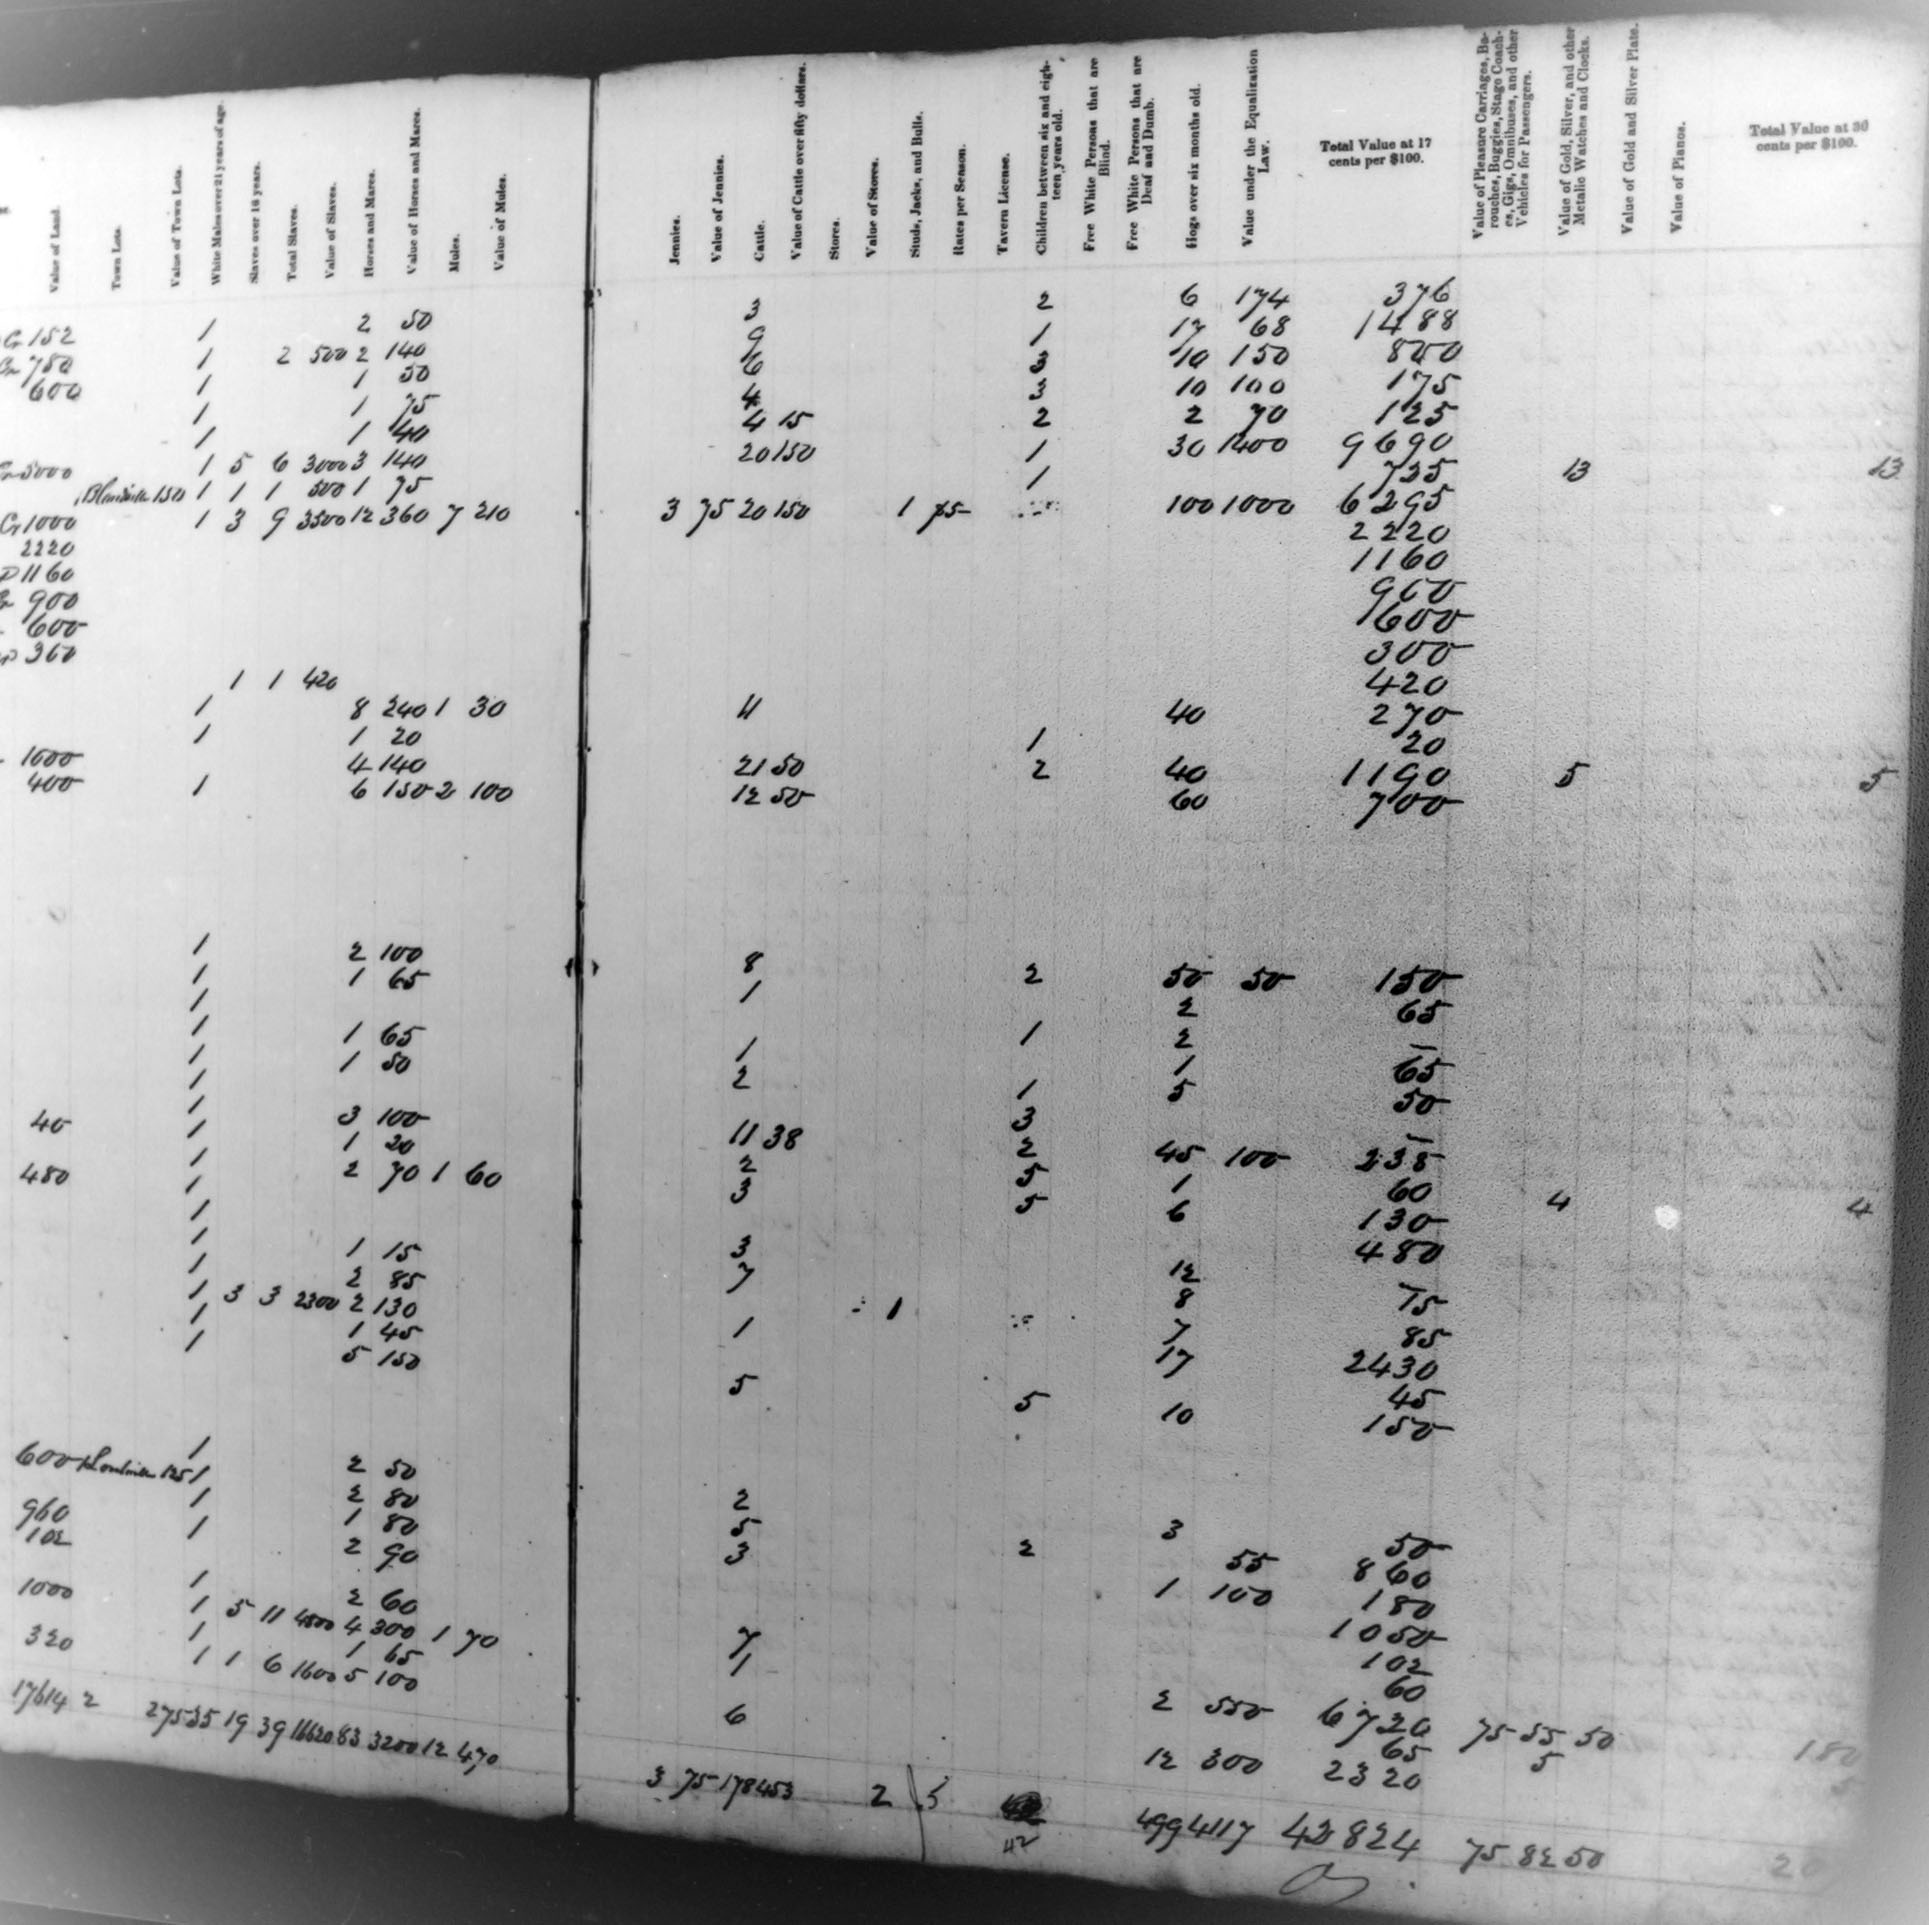 Value of Land. Town Lots. Value of Town Lots. White Males over 21 years of age. Slaves over 16 years. Total Slaves. Value of Slaves. Horses and Mares. Value of Horses and Mares. Mules. Value of Mules. Jennies. Value of Jennies. Cattle. Value of Cattle over fifty dollars. Stores. Value of Stores. Studs, Jacks, and Bulls. Rates per Season. Tavern License. Children between six and eighteen years old. Free White Persons that are Blind. Free White Persons that are Deaf and Dumb. Hogs over six months old. Value under the Equalization Law. Total Value at 17 cents per $100. Value of Pleasure Carriages, Barouches, Buggies, Stage Coaches, Gigs, Omnibuses, and other Vehicles for Passengers. Value of Gold, Silver, and other Metalic Watches and Clocks. Value of Gold and Silver Plate. Value of Pianos. Total Value at 30 cents per $100.
152 1 2 50 3 2 6 174 376
750 1 2 500 2 140 9 1 17 68 1488
600 1 1 50 6 3 10 150 800
1 1 75 4 3 10 100 175
1 1 40 4 15 2 2 70 125
5000 1 5 6 3000 3 140 20 150 1 30 1400 9690
150 1 1 1 500 1 75 1 735 13 13
1000 1 3 9 3500 12 360 7 210 3 75 20 150 1 75 100 1000 6295
2220 2220
1160 1160
900 900
600 600
360 300
1 1 420 420
1 8 240 1 30 11 40 270
1 1 20 1 20
1000 4 140 21 50 2 40 1190 5 5
400 1 6 150 2 100 12 50 60 700
1 2 100 8 2 50 50 150
1 1 65 1 2 65
1 1 2 –
1 1 65 1 1 65
1 1 50 2 1 5 50
1 3 –
40 1 3 100 11 38 2 45 100 238
1 1 20 2 5 1 60
1 2 70 1 60 3 5 6 130 4 4
480 1 480
1 1 15 3 12 15
1 2 85 7 8 85
1 3 3 2300 2 130 1 7 2430
1 1 45 1 17 45
1 5 150 5 5 10 150
1 2 50 2 3 50
600 125 1 2 80 5 2 55 860
1 1 80 3 1 100 180
960 1 2 90 1050
102 102
1 2 60 7 60
1000 1 5 11 4800 4 300 1 70 1 2 550 6720 75 55 50 180
1 1 65 65 5
320 1 1 6 1600 5 100 6 12 300 2320
17614 2 275 35 19 39 16620 83 3200 12 470 3 75 178 453 2 42 499 4117 42824 75 82 50